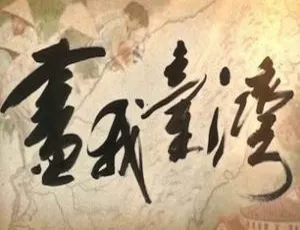 畫我臺灣